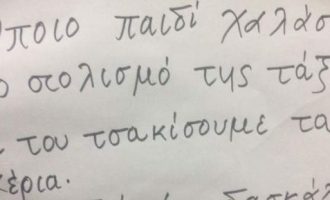 Όποιο παιδί χαλάσ
ο στολισμό της τάξ
του τσακίσουμε τα
χέρια.
δασκάλ